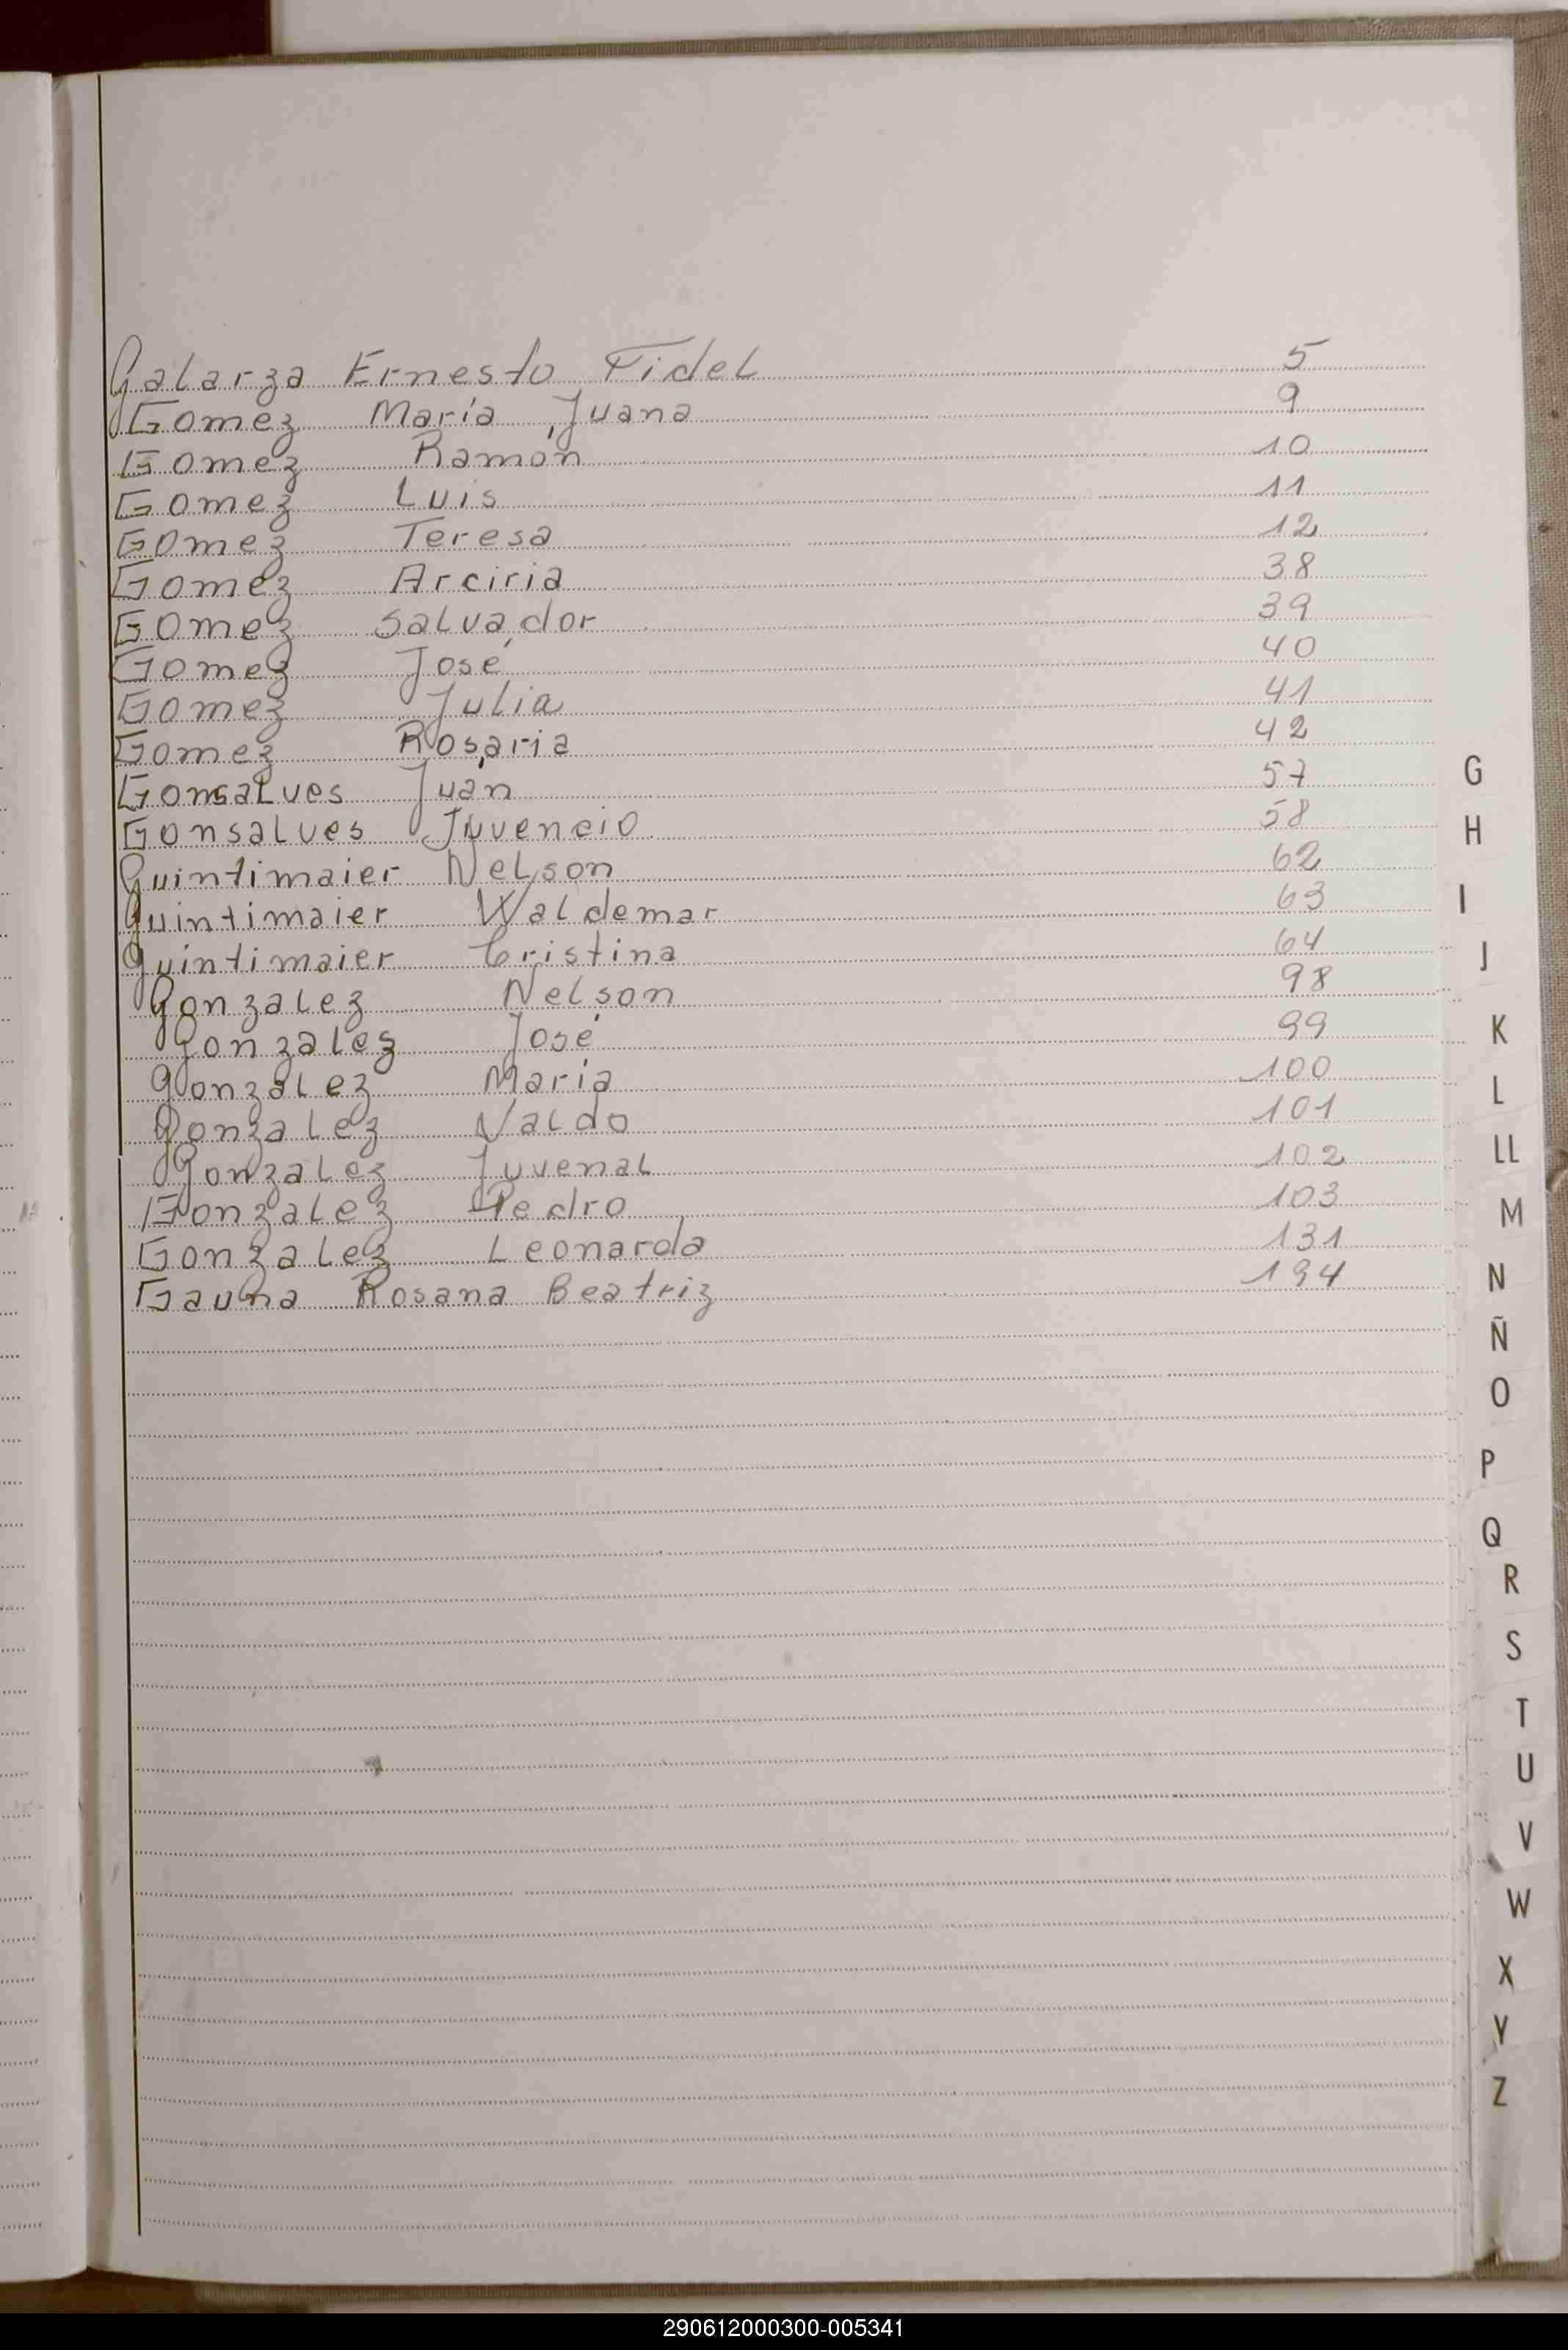 Galarza Ernesto Fidel 5
Gomez María Juana 9
Gomez Ramón 10
Gomez Luis 11
Gomez Teresa 12
Gomez Arciria 38
Gomez Salvador 39
Gomez José 40
Gomez Julia 41
Gomez Rosaria 42
Gonsalves Juan 57
Gonsalves Juvencio 58
Guintimaier Nelson 62
Guintimaier Waldemar 63
Guintimaier Cristina 64
Gonzalez Nelson 98
Gonzalez José 99
Gonzalez Maria 100
Gonzalez Valdo 101
Gonzalez Juvenal 102
Gonzalez Pedro 103
Gonzalez Leonarda 131
Gauna Rosana Beatriz 194
G
H
I
J
K
L
LL
M
N
Ñ
O
P
Q
R
S
T
U
V
W
X
Y
Z
290612000300-005341